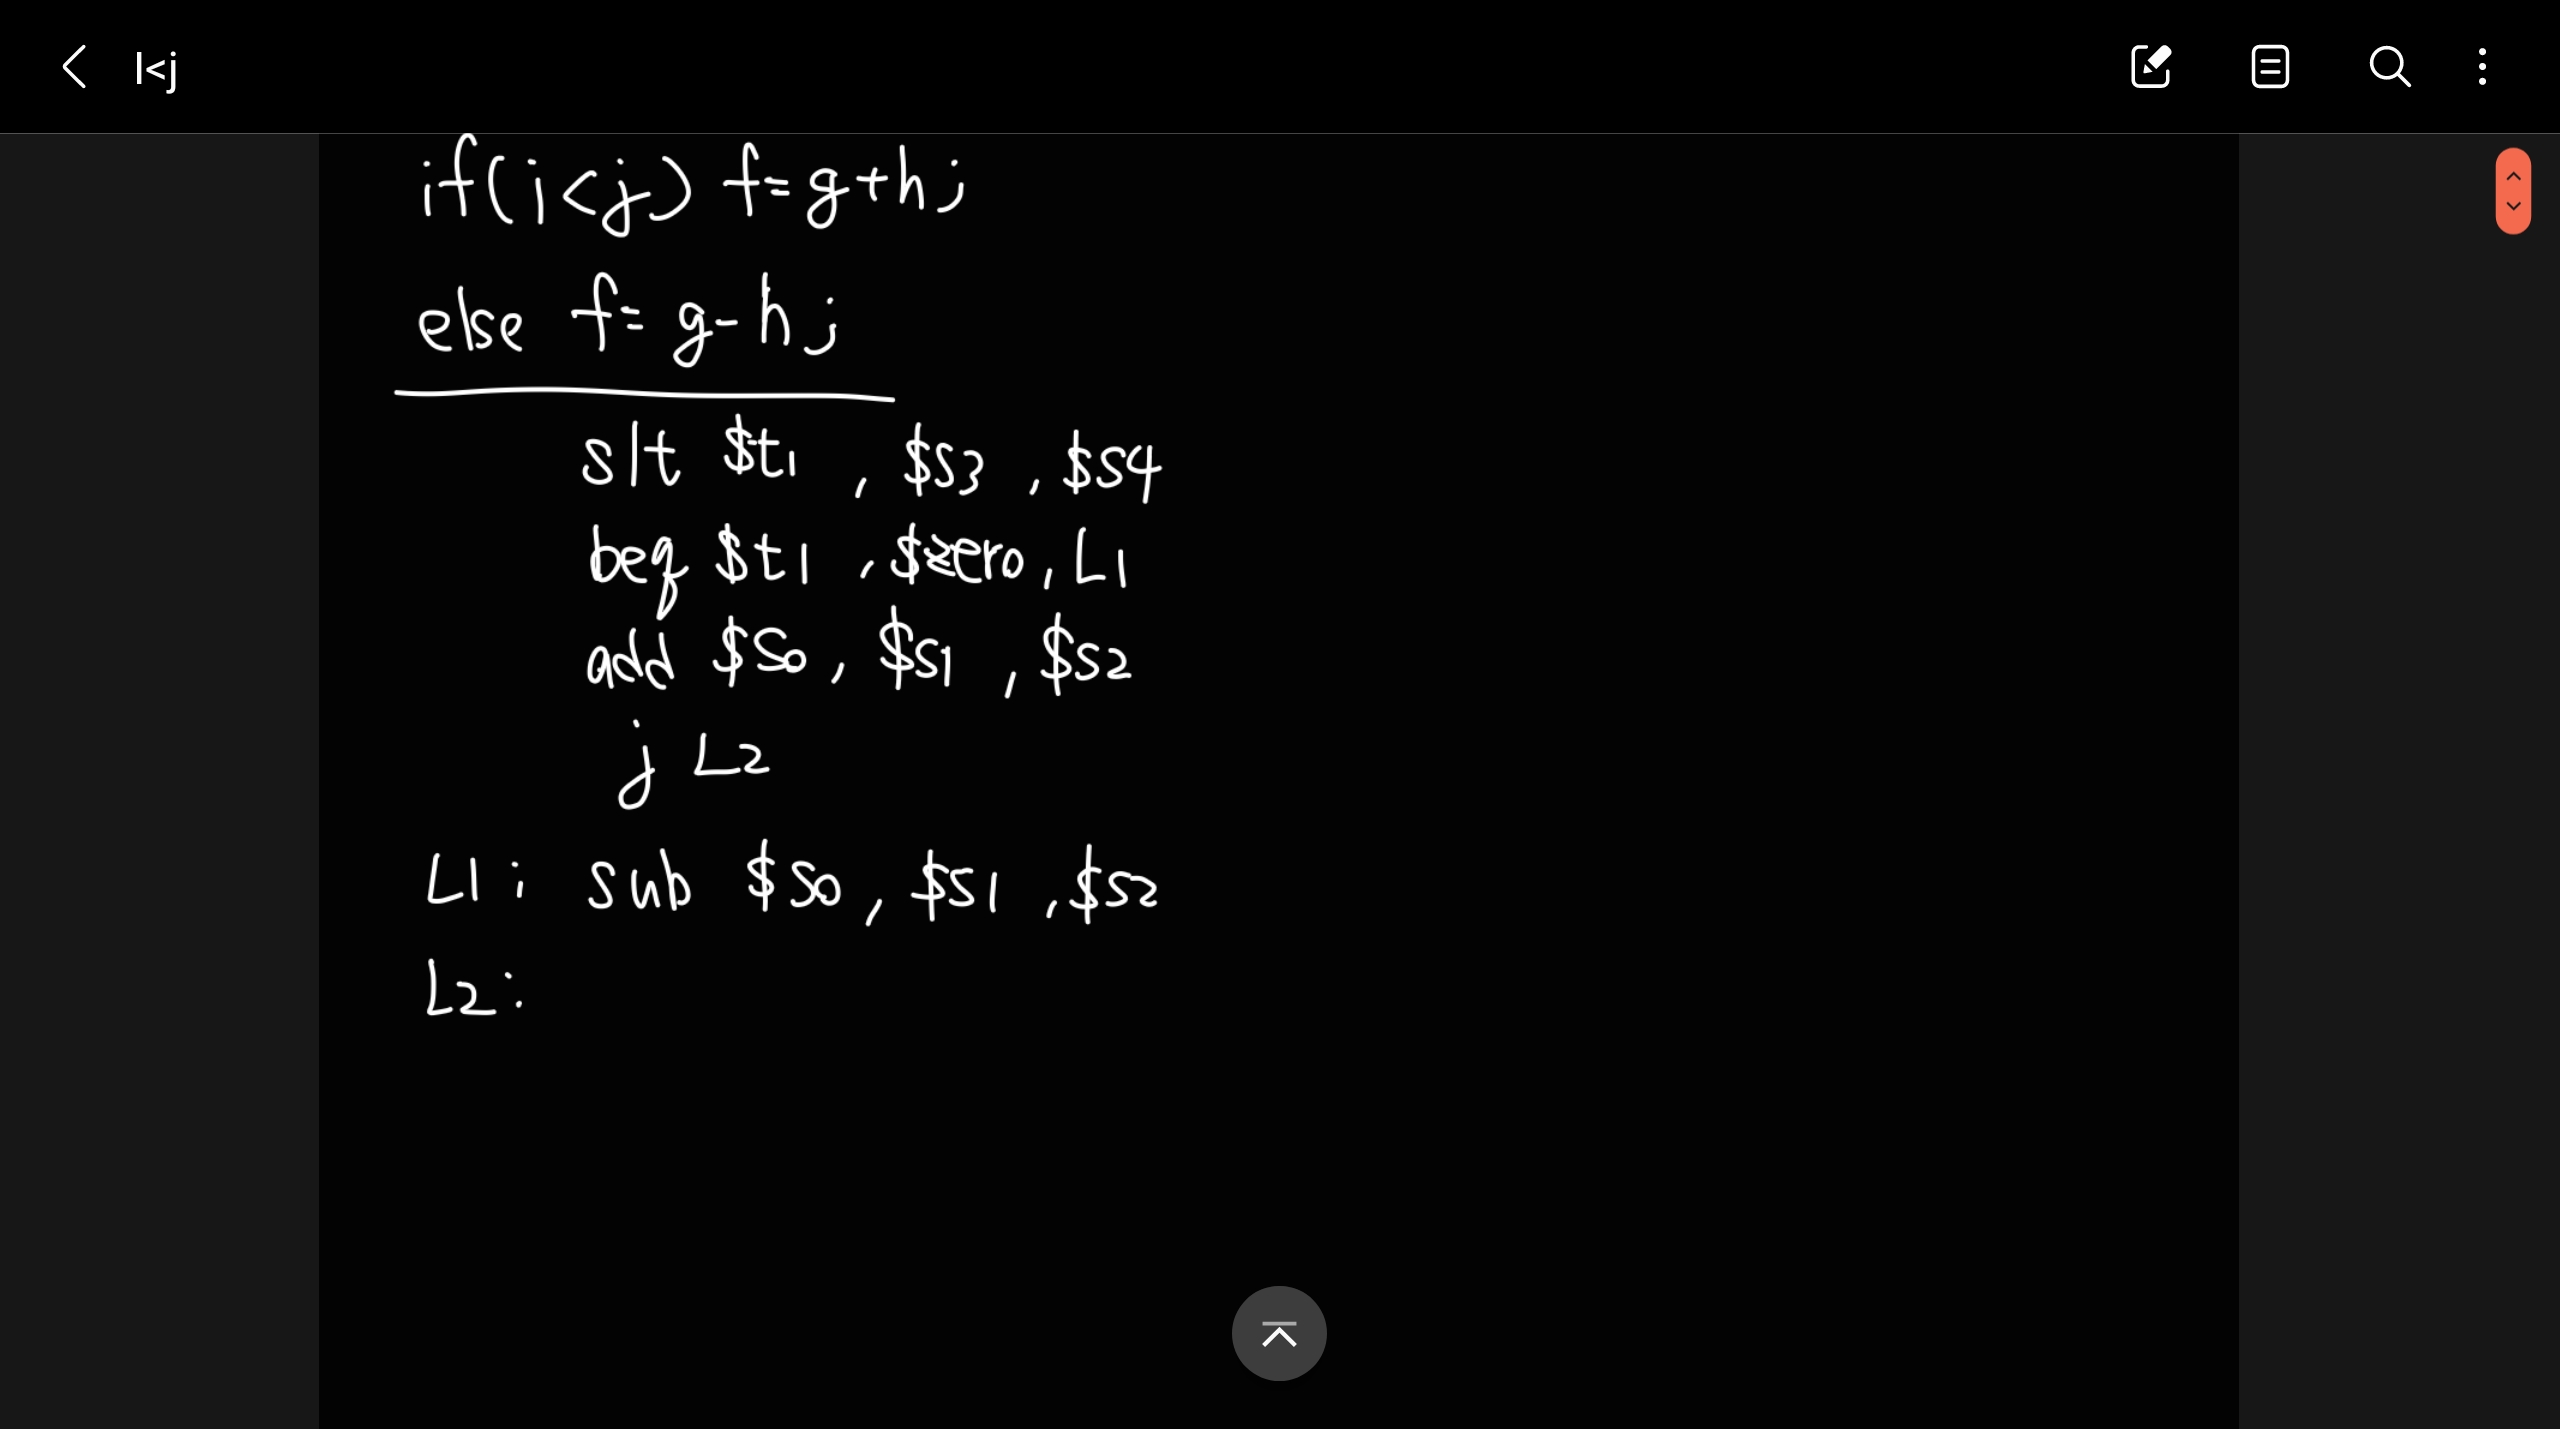 I<j
if(i<j) f=g+h;
else f=g-h;
slt $t1, $s3, $s4
beq $t1, $zero, L1
add $s0, $s1, $s2
j L2
L1: sub $s0, $s1, $s2
L2: